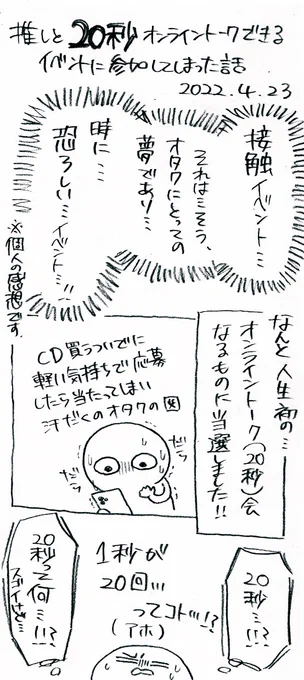 推しと20秒オンライントークできる
イベントに参加してしまった話
2022.4.23
接触イベント…
それは…そう、
オタクにとっての
夢であり…
時に…
恐ろしい…イベント…!!
※個人の感想です。
なんと人生初の…
オンライントーク(20秒)会
なるものに当選しました!!
CD買うついでに
軽い気持ちで応募
したら当たってしまい
汗だくのオタクの図
だら
だら
20秒…!!?
1秒が
20回…
ってコト…!?
(アホ)
20秒って何…!!?